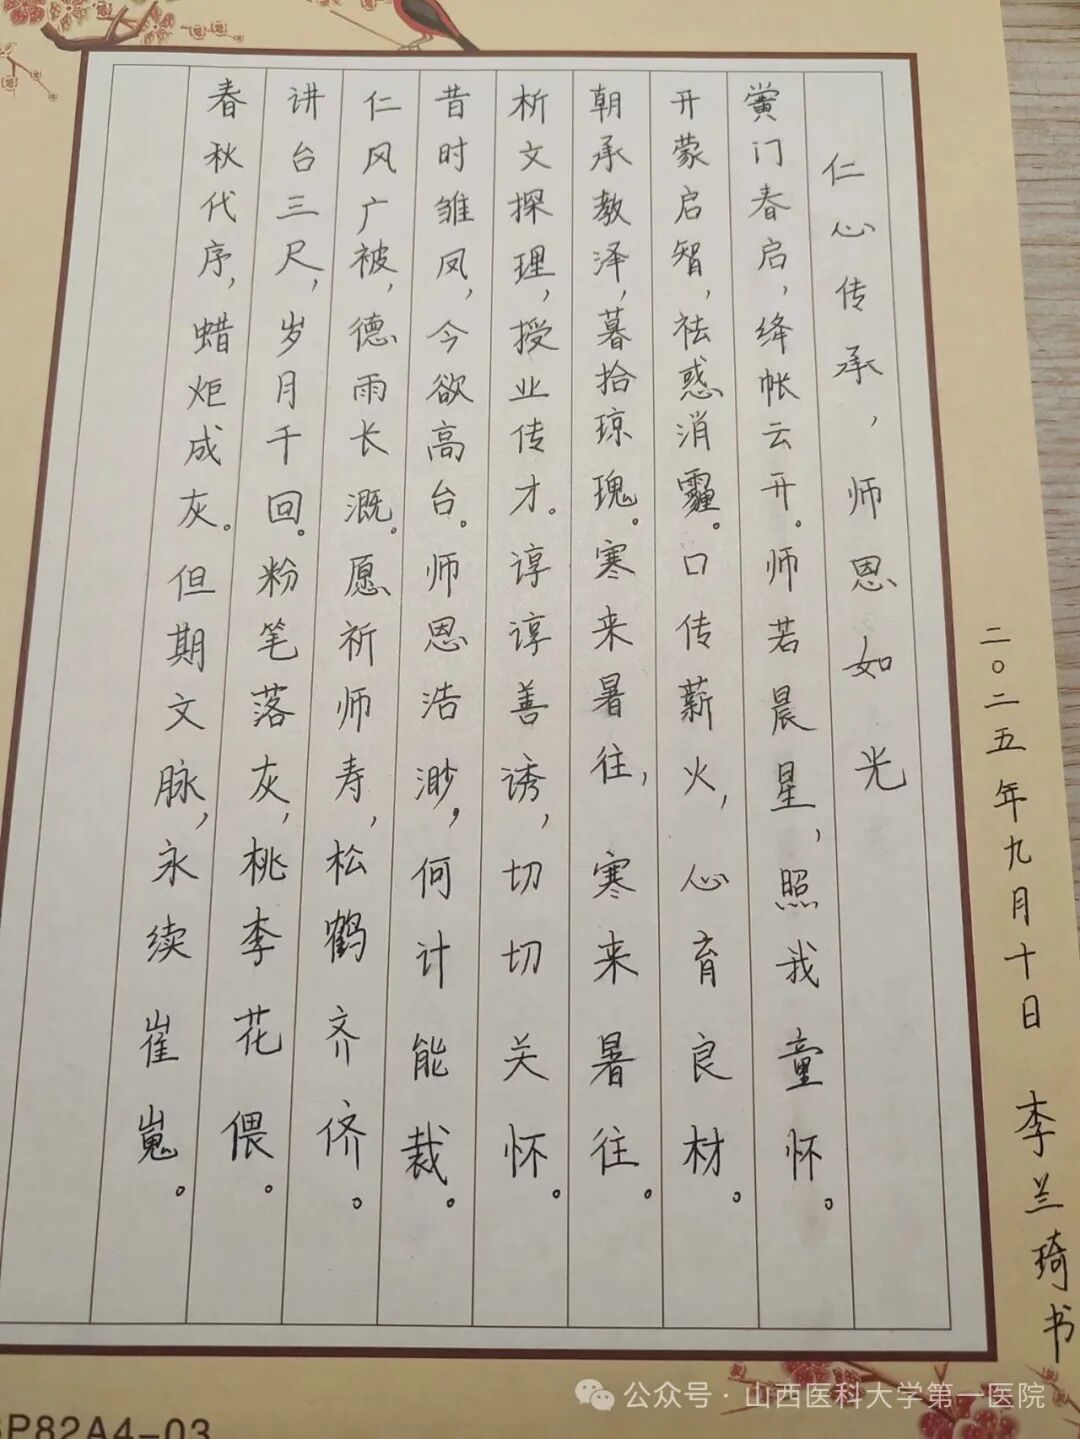 仁心传承，师恩如光
黉门春启，绛帐云开。师若晨星，照我童怀。
开蒙启智，祛惑消霾。口传薪火，心育良材。
朝承教泽，暮拾琼瑰。寒来暑往，寒来暑往。
析文探理，授业传才。谆谆善诱，切切关怀。
昔时雏凤，今欲高台。师恩浩渺，何计能裁。
仁风广被，德雨长溉。愿祈师寿，松鹤齐侪。
讲台三尺，岁月千回。粉笔落灰，桃李花偎。
春秋代序，蜡炬成灰。但期文脉，永续崔嵬。
二〇二五年九月十日 李兰琦书
公众号·山西医科大学第一医院
SP82A4-03